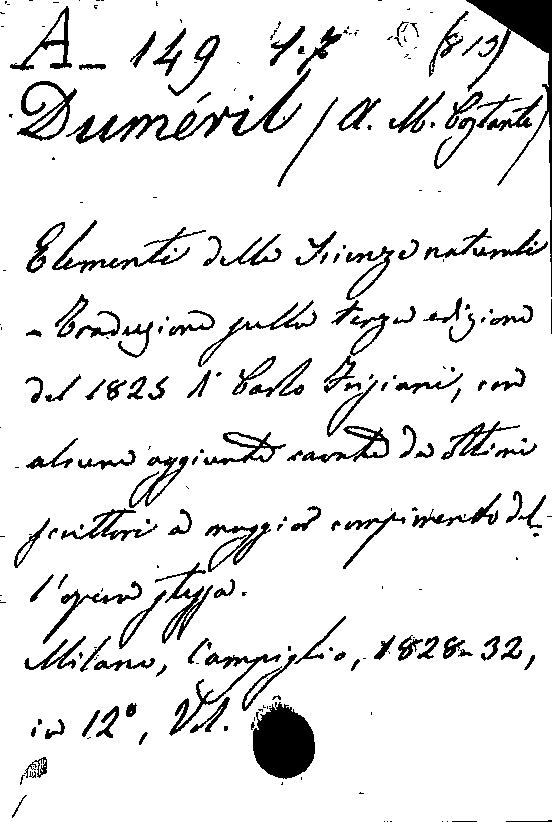 A- 149 1.7 (813)
Duméril (A. M. Costante)
Elementi delle Scienze naturali
- Traduzione sulla terza edizione
del 1825 di Carlo Frigiani, con
alcune aggiunte cavate da ottimi
scrittori a maggior compimento del-
l'opera stessa.
Milano, Campiglio, 1828-32,
in 12°, Vol.